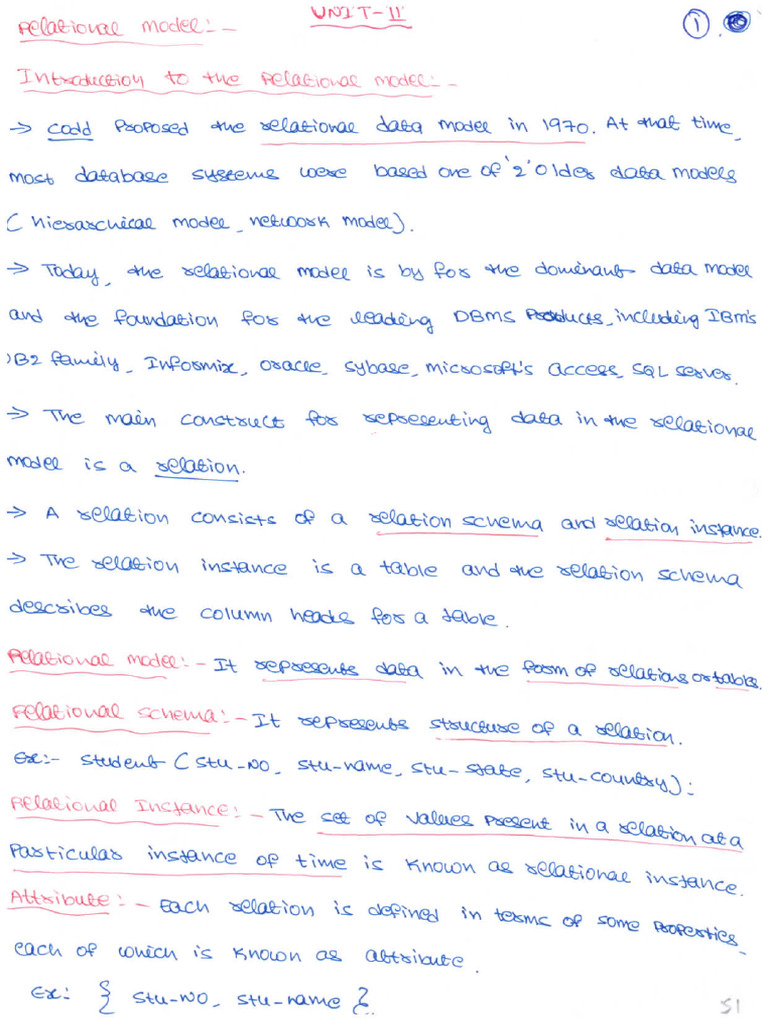 UNIT-II
①
Relational model:-
Introduction to the Relational model:-
→ Codd Proposed the relational data model in 1970. At that time,
most database systems were based one of '2' Older data models
(hierarchical model, network model).
→ Today, the relational model is by for the dominant data model
and the foundation for the leading DBMS Products, including IBM's
DB2 family, Informix, oracle, sybase, microsoft's access, SQL server.
→ The main construct for representing data in the relational
model is a relation.
→ A relation consists of a relation schema and relation instance.
→ The relation instance is a table and the relation schema
describes the column heads for a table.
Relational model:- It represents data in the form of relations or tables.
Relational schema:- It represents structure of a relation.
Ex:- student (stu-NO, stu-name, stu-state, stu-country):
Relational Instance:- The set of values present in a relation at a
Particular instance of time is known as relational instance.
Attribute:- Each relation is defined in terms of some Properties,
each of which is known as attribute.
Ex: { stu-NO, stu-name }.
51